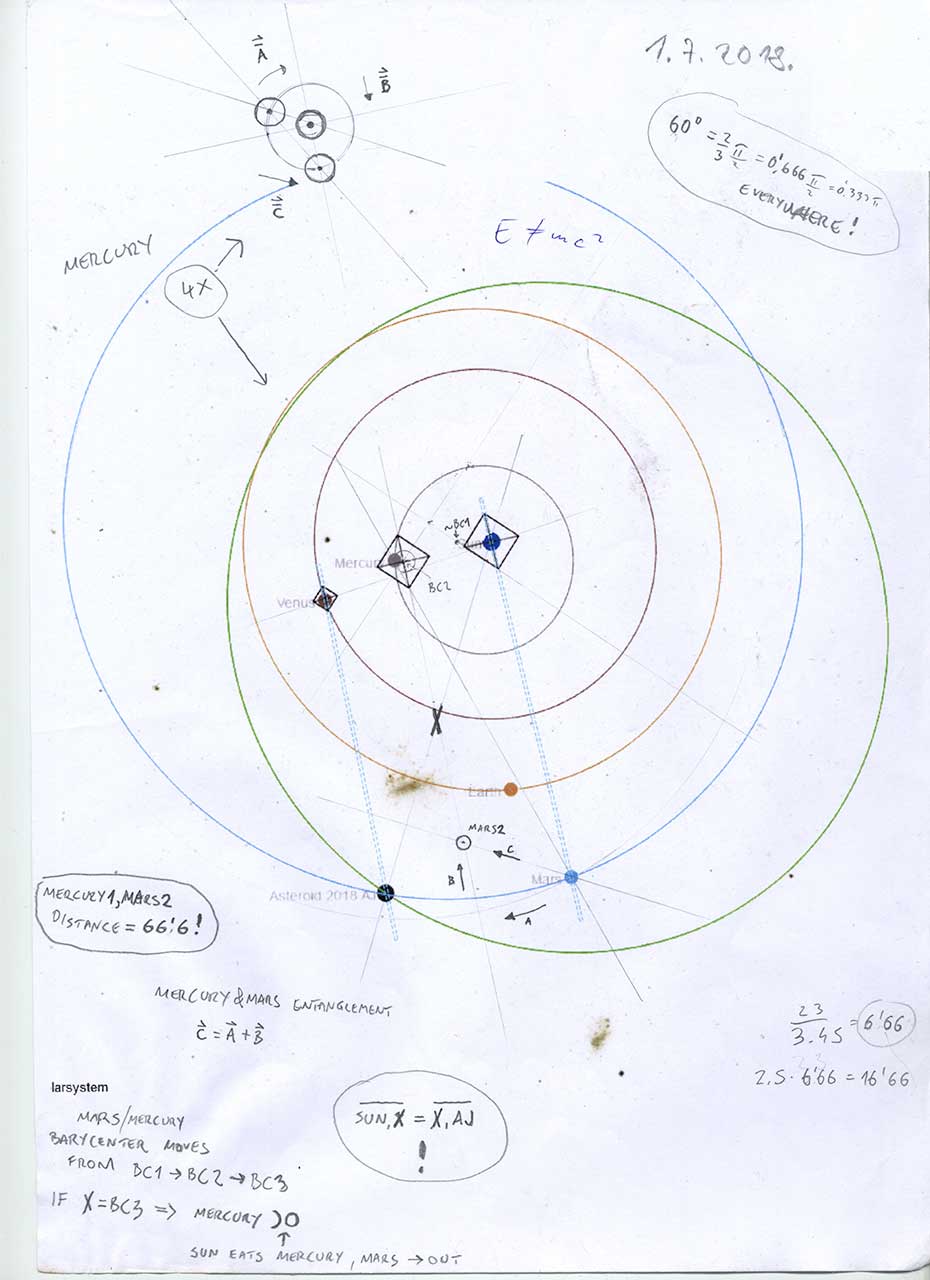 1.7.2018.
A
B
C
60° = 2/3 π/2 = 0'666 π/2 = 0'333 π
EVERYWHERE!
MERCURY
4X
E ≠ mc²
~BC1
Mercury
BC2
Venus
X
Earth
MARS2
C
B
Mars
A
Asteroid 2018 AJ
MERCURY1, MARS2
DISTANCE = 66'6!
MERCURY & MARS ENTANGLEMENT
C = A + B
23/3.45 = 6'66
2.5 · 6'66 = 16'66
larsystem
MARS/MERCURY
BARYCENTER MOVES
FROM BC1 → BC2 → BC3
IF X = BC3 => MERCURY
SUN EATS MERCURY, MARS → OUT
SUN,X = X,AJ
!